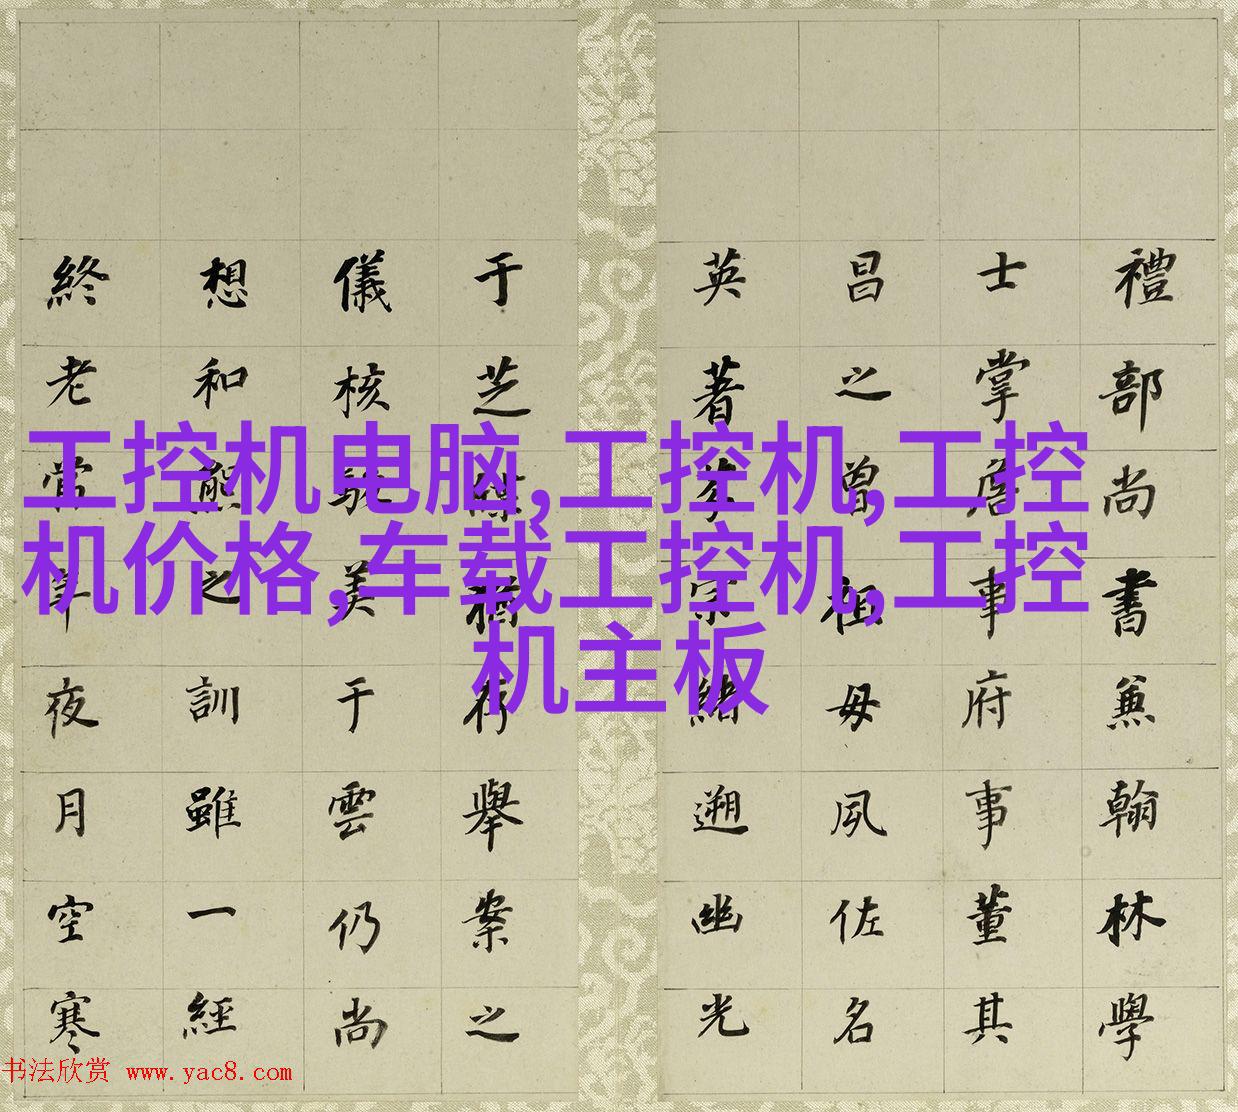 工控机电脑,工控机,工控
机价格,车载工控机,工控
机主板
禮部尚書兼翰林學
士掌詹事府事董其
昌之曾祖母夙佐名
英著宗緒遡幽光
于芝猶存舉案之
儀核美于雲仍尚
想和熊之訓雖一經
終老年夜月空寒
书法欣赏 www.yac8.com